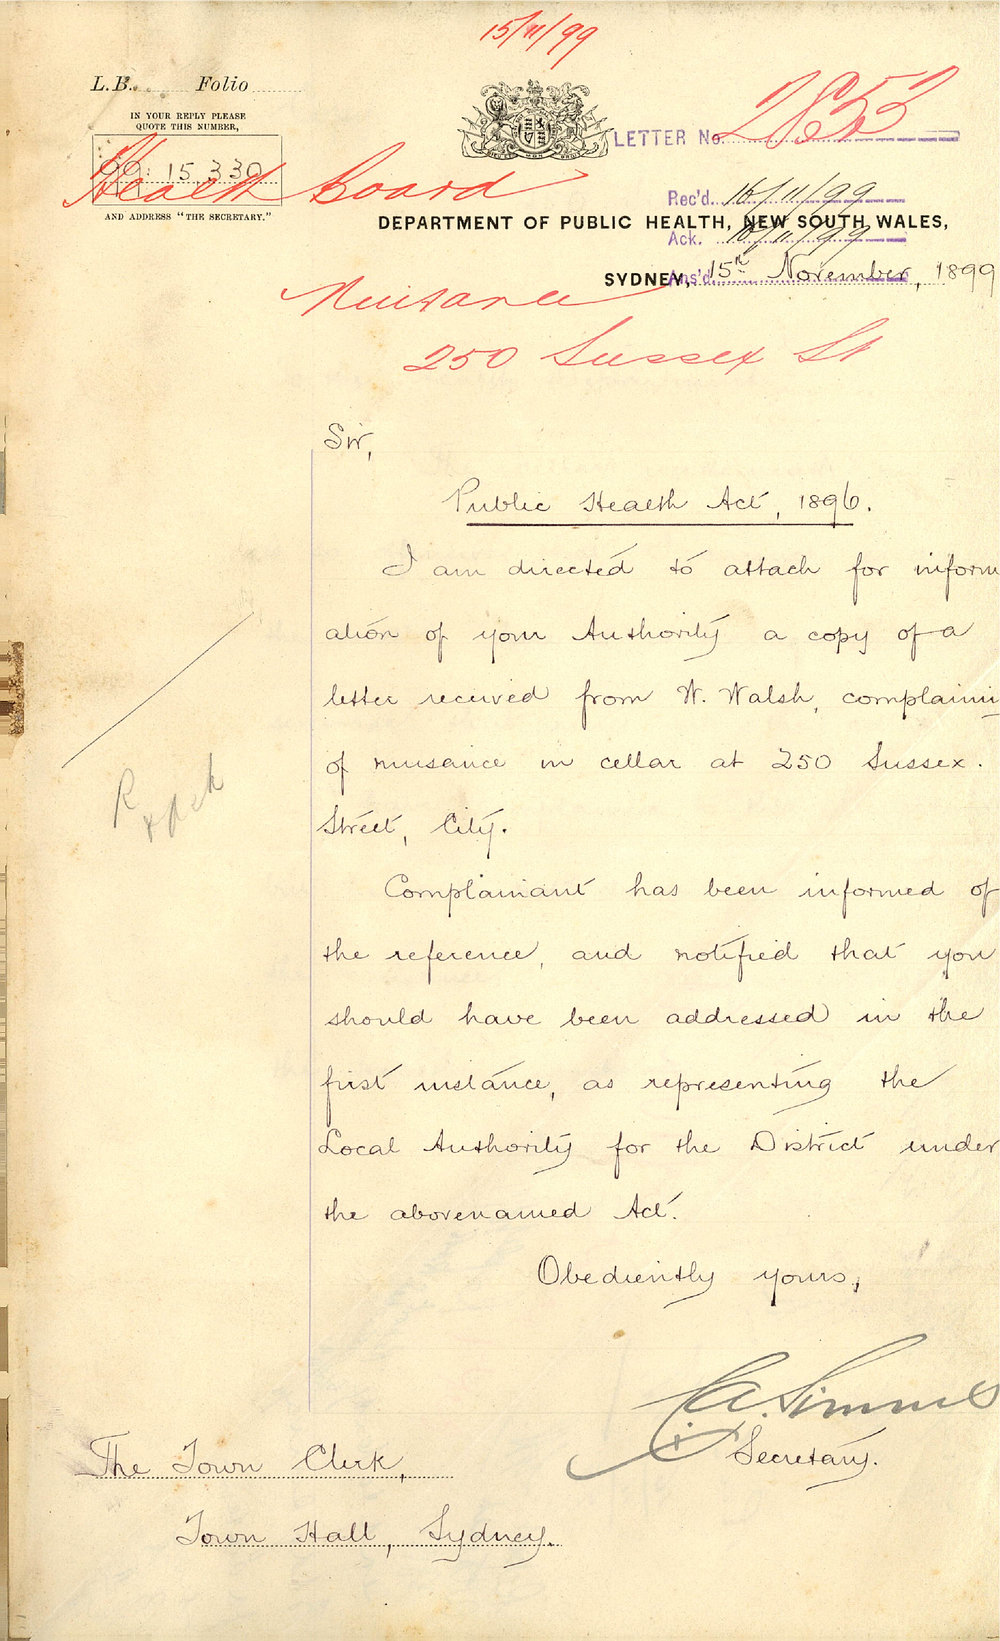 15/11/99
L.B. Folio
IN YOUR REPLY PLEASE
QUOTE THIS NUMBER,
99. 15,330
AND ADDRESS "THE SECRETARY."
LETTER No 2853
Health Board
Rec'd. 16/11/99
DEPARTMENT OF PUBLIC HEALTH, NEW SOUTH WALES,
Ack. 16/11/99
Ans'd
SYDNEY, 15th November, 1899
Nuisance
250 Sussex St
Sir,
Public Health Act, 1896.
I am directed to attach for inform
ation of your Authority a copy of a
letter received from W. Walsh, complaini
of nuisance in cellar at 250 Sussex.
Street, City.
Complainant has been informed of
the reference, and notified that you
should have been addressed in the
first instance, as representing the
Local Authority for the District under
the abovenamed Act.
Obediently yours,
Secretary.
The Town Clerk,
Town Hall, Sydney.